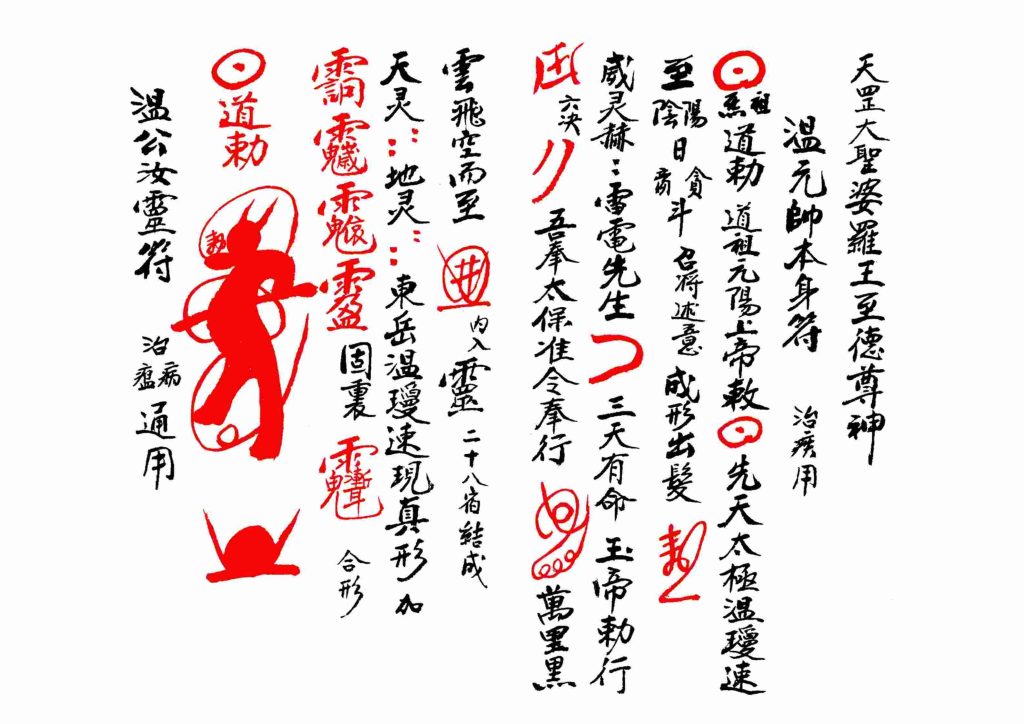 天罡大聖婆羅王至德尊神
温元帥本身符 治疾用
祖炁道勅 道祖元陽上帝敕 先天太極温瓊速
至 陰陽日 斗 召将述意 成形出髮
威灵赫:: 雷電先生 三天有命 玉帝勅行
六決 吾奉太保准令奉行 萬里黑
雲飛空而至 内入靈 二十八宿結成
天灵:: 地灵:: 東岳温瓊速現真形 加
固裏 合形
道勅
温公汝靈符 治病瘟通用